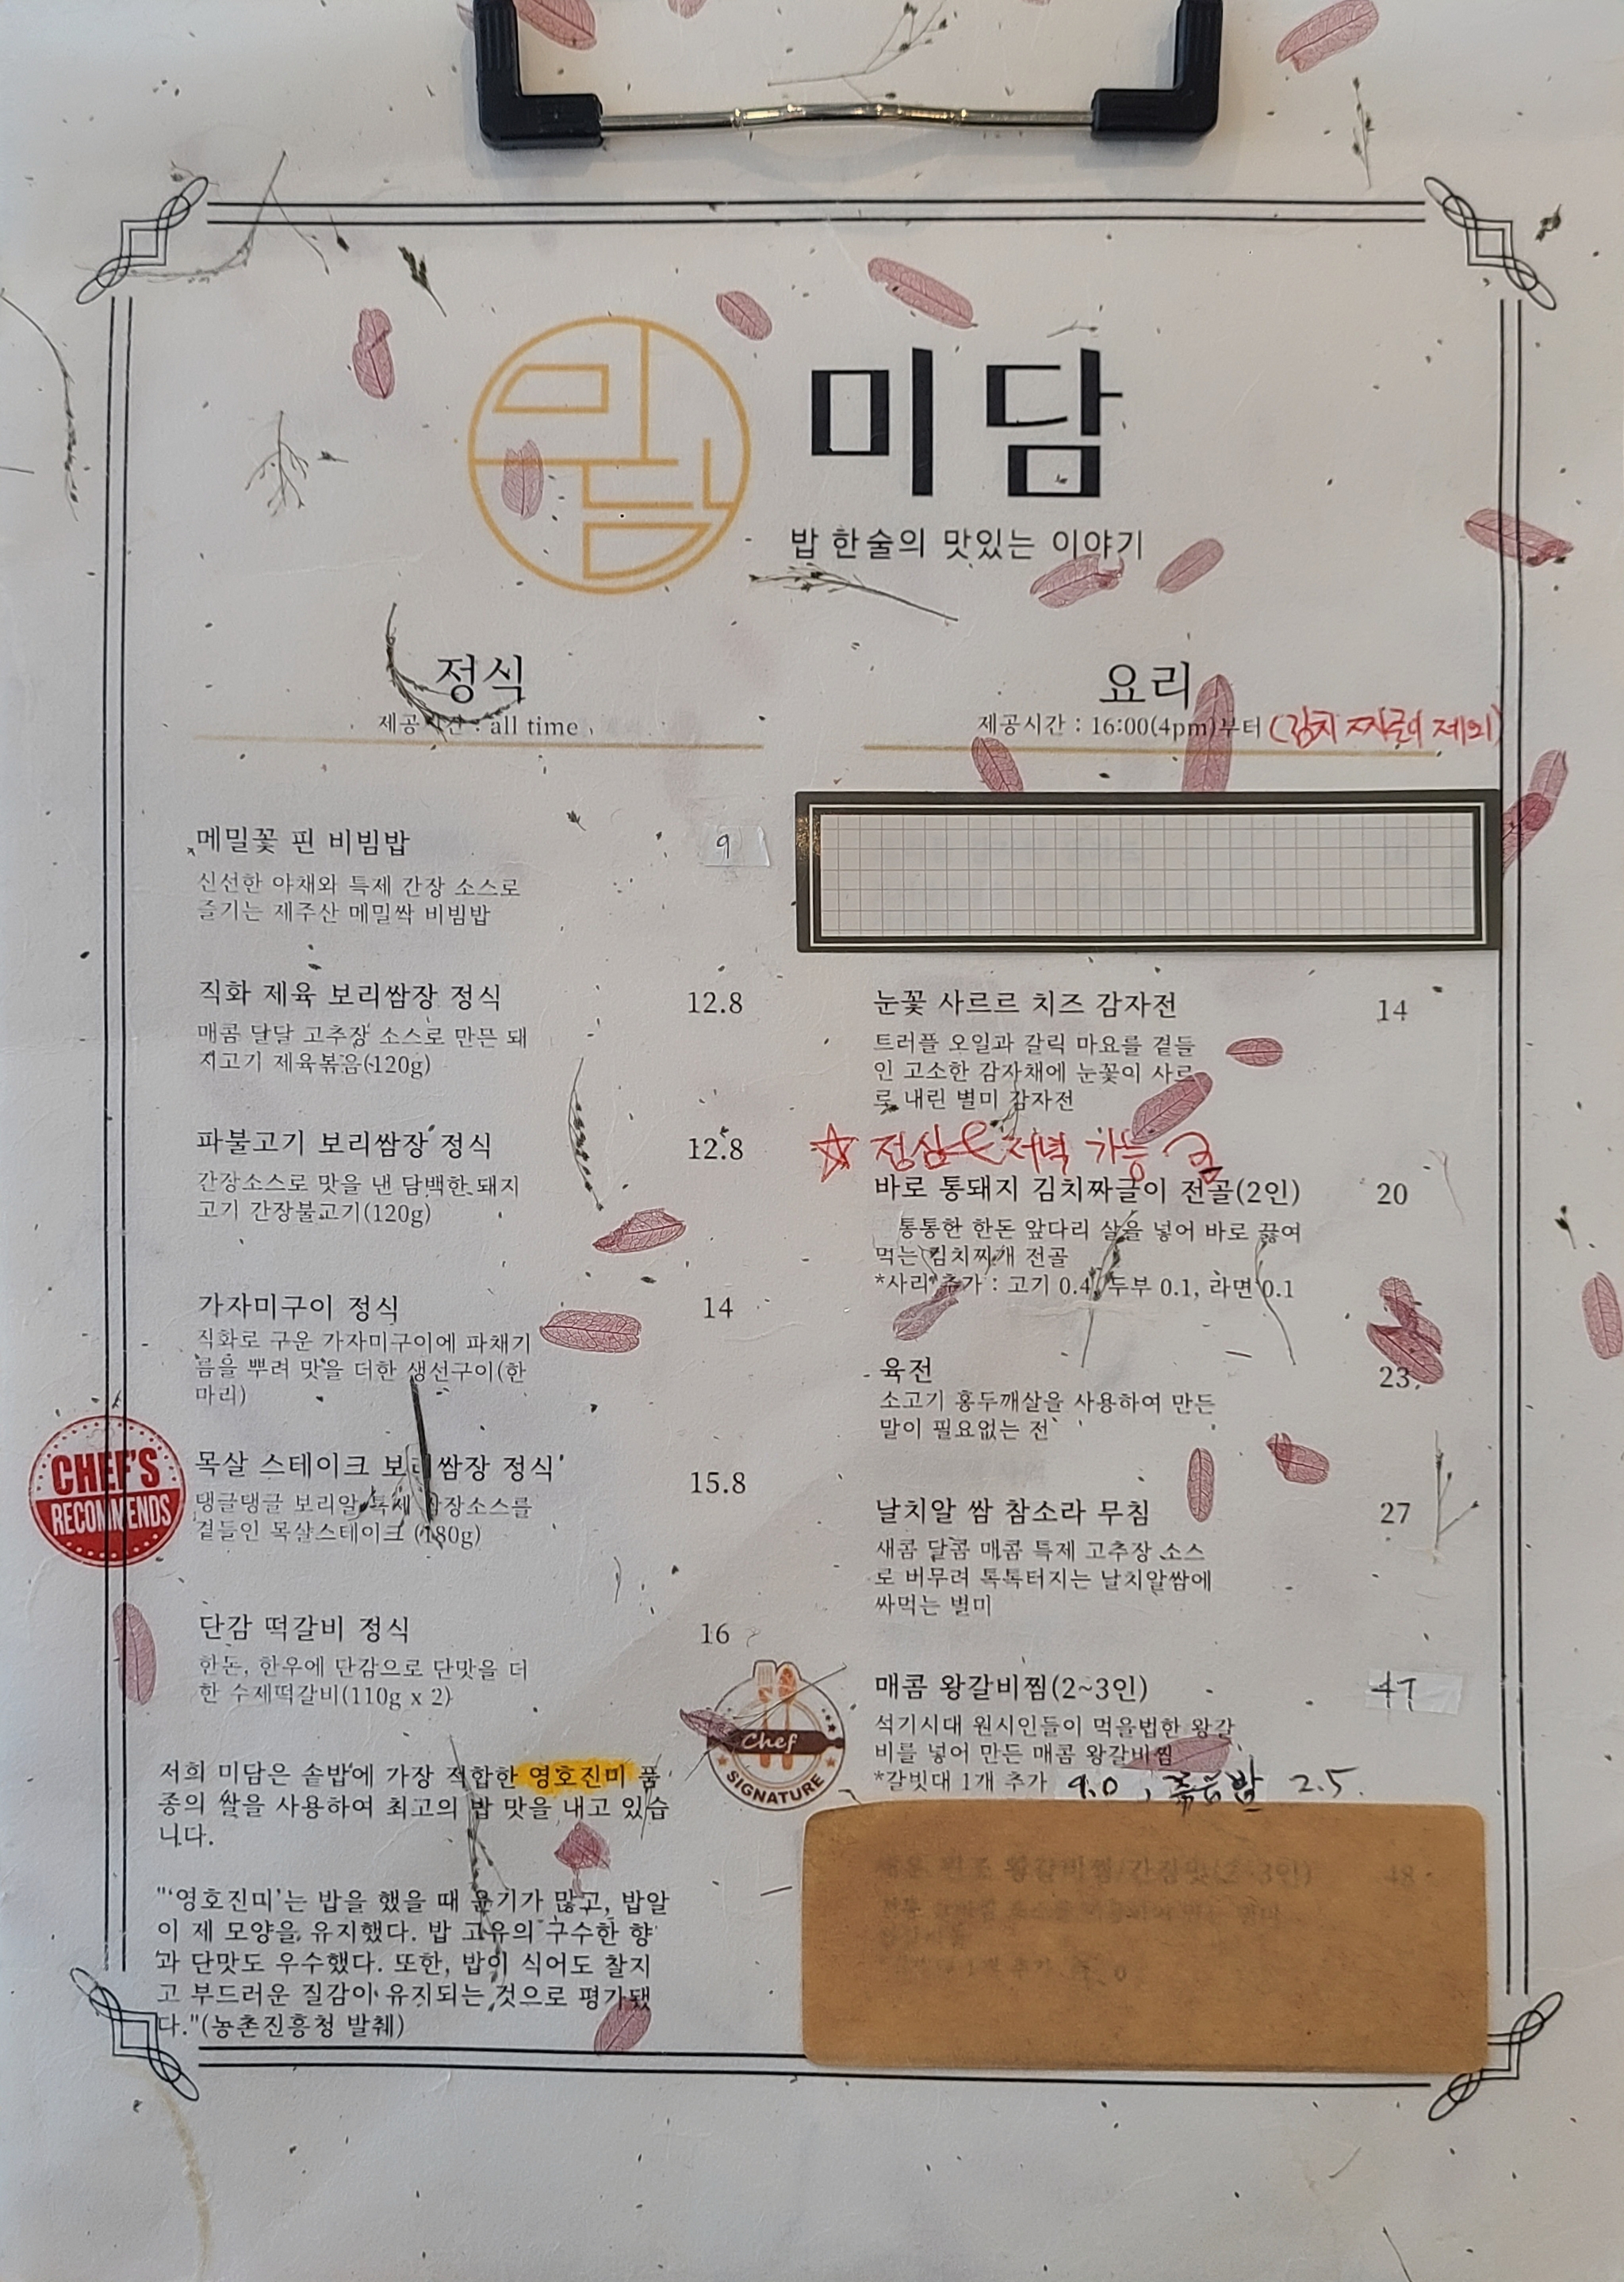 미담
미담
밥 한술의 맛있는 이야기
정식
제공시간 : all time
메밀꽃 핀 비빔밥 9
신선한 야채와 특제 간장 소스로
즐기는 제주산 메밀싹 비빔밥
직화 제육 보리쌈장 정식 12.8
매콤 달달 고추장 소스로 만든 돼
지고기 제육볶음(120g)
파불고기 보리쌈장 정식 12.8
간장소스로 맛을 낸 담백한 돼지
고기 간장불고기(120g)
가자미구이 정식 14
직화로 구운 가자미구이에 파채기
름을 뿌려 맛을 더한 생선구이(한
마리)
CHEF'S
RECOMMENDS
목살 스테이크 보리쌈장 정식 15.8
탱글탱글 보리알 특제 쌈장소스를
곁들인 목살스테이크 (180g)
단감 떡갈비 정식 16
한돈, 한우에 단감으로 단맛을 더
한 수제떡갈비(110g x 2)
저희 미담은 솥밥에 가장 적합한 영호진미 품
종의 쌀을 사용하여 최고의 밥 맛을 내고 있습
니다.
"'영호진미'는 밥을 했을 때 윤기가 많고, 밥알
이 제 모양을 유지했다. 밥 고유의 구수한 향
과 단맛도 우수했다. 또한, 밥이 식어도 찰지
고 부드러운 질감이 유지되는 것으로 평가됐
다."(농촌진흥청 발췌)
요리
제공시간 : 16:00(4pm)부터 (김치 짜글이 제외)
눈꽃 사르르 치즈 감자전 14
트러플 오일과 갈릭 마요를 곁들
인 고소한 감자채에 눈꽃이 사르
르 내린 별미 감자전
☆ 점심 & 저녁 가능
바로 통돼지 김치짜글이 전골(2인) 20
통통한 한돈 앞다리 살을 넣어 바로 끓여
먹는 김치찌개 전골
*사리 추가 : 고기 0.4, 두부 0.1, 라면 0.1
육전 23
소고기 홍두깨살을 사용하여 만든
말이 필요없는 전
날치알 쌈 참소라 무침 27
새콤 달콤 매콤 특제 고추장 소스
로 버무려 톡톡터지는 날치알쌈에
싸먹는 별미
Chef
SIGNATURE
매콤 왕갈비찜(2~3인) 47
석기시대 원시인들이 먹을법한 왕갈
비를 넣어 만든 매콤 왕갈비찜
*갈빗대 1개 추가 9.0 , 볶음밥 2.5